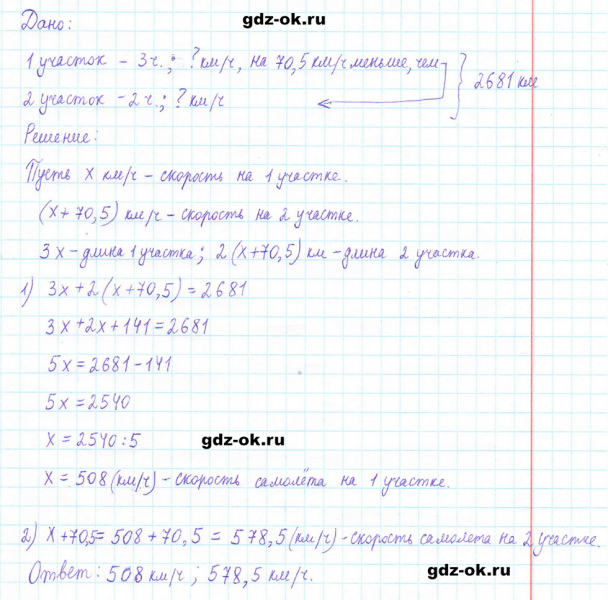 gdz-ok.ru
Дано:
1 участок - 3ч.; ? км/ч, на 70,5 км/ч меньше, чем
2681 км
2 участок - 2ч.; ? км/ч
Решение:
Пусть х км/ч - скорость на 1 участке.
(х+70,5) км/ч - скорость на 2 участке.
3х - длина 1 участка; 2(х+70,5) км - длина 2 участка.
1) 3х+2(х+70,5)=2681
3х+2х+141=2681
5х=2681-141
5х=2540
х=2540:5
gdz-ok.ru
х=508(км/ч) - скорость самолёта на 1 участке.
2) х+70,5=508+70,5=578,5(км/ч) - скорость самолета на 2 участке.
Ответ: 508 км/ч; 578,5 км/ч.
gdz-ok.ru